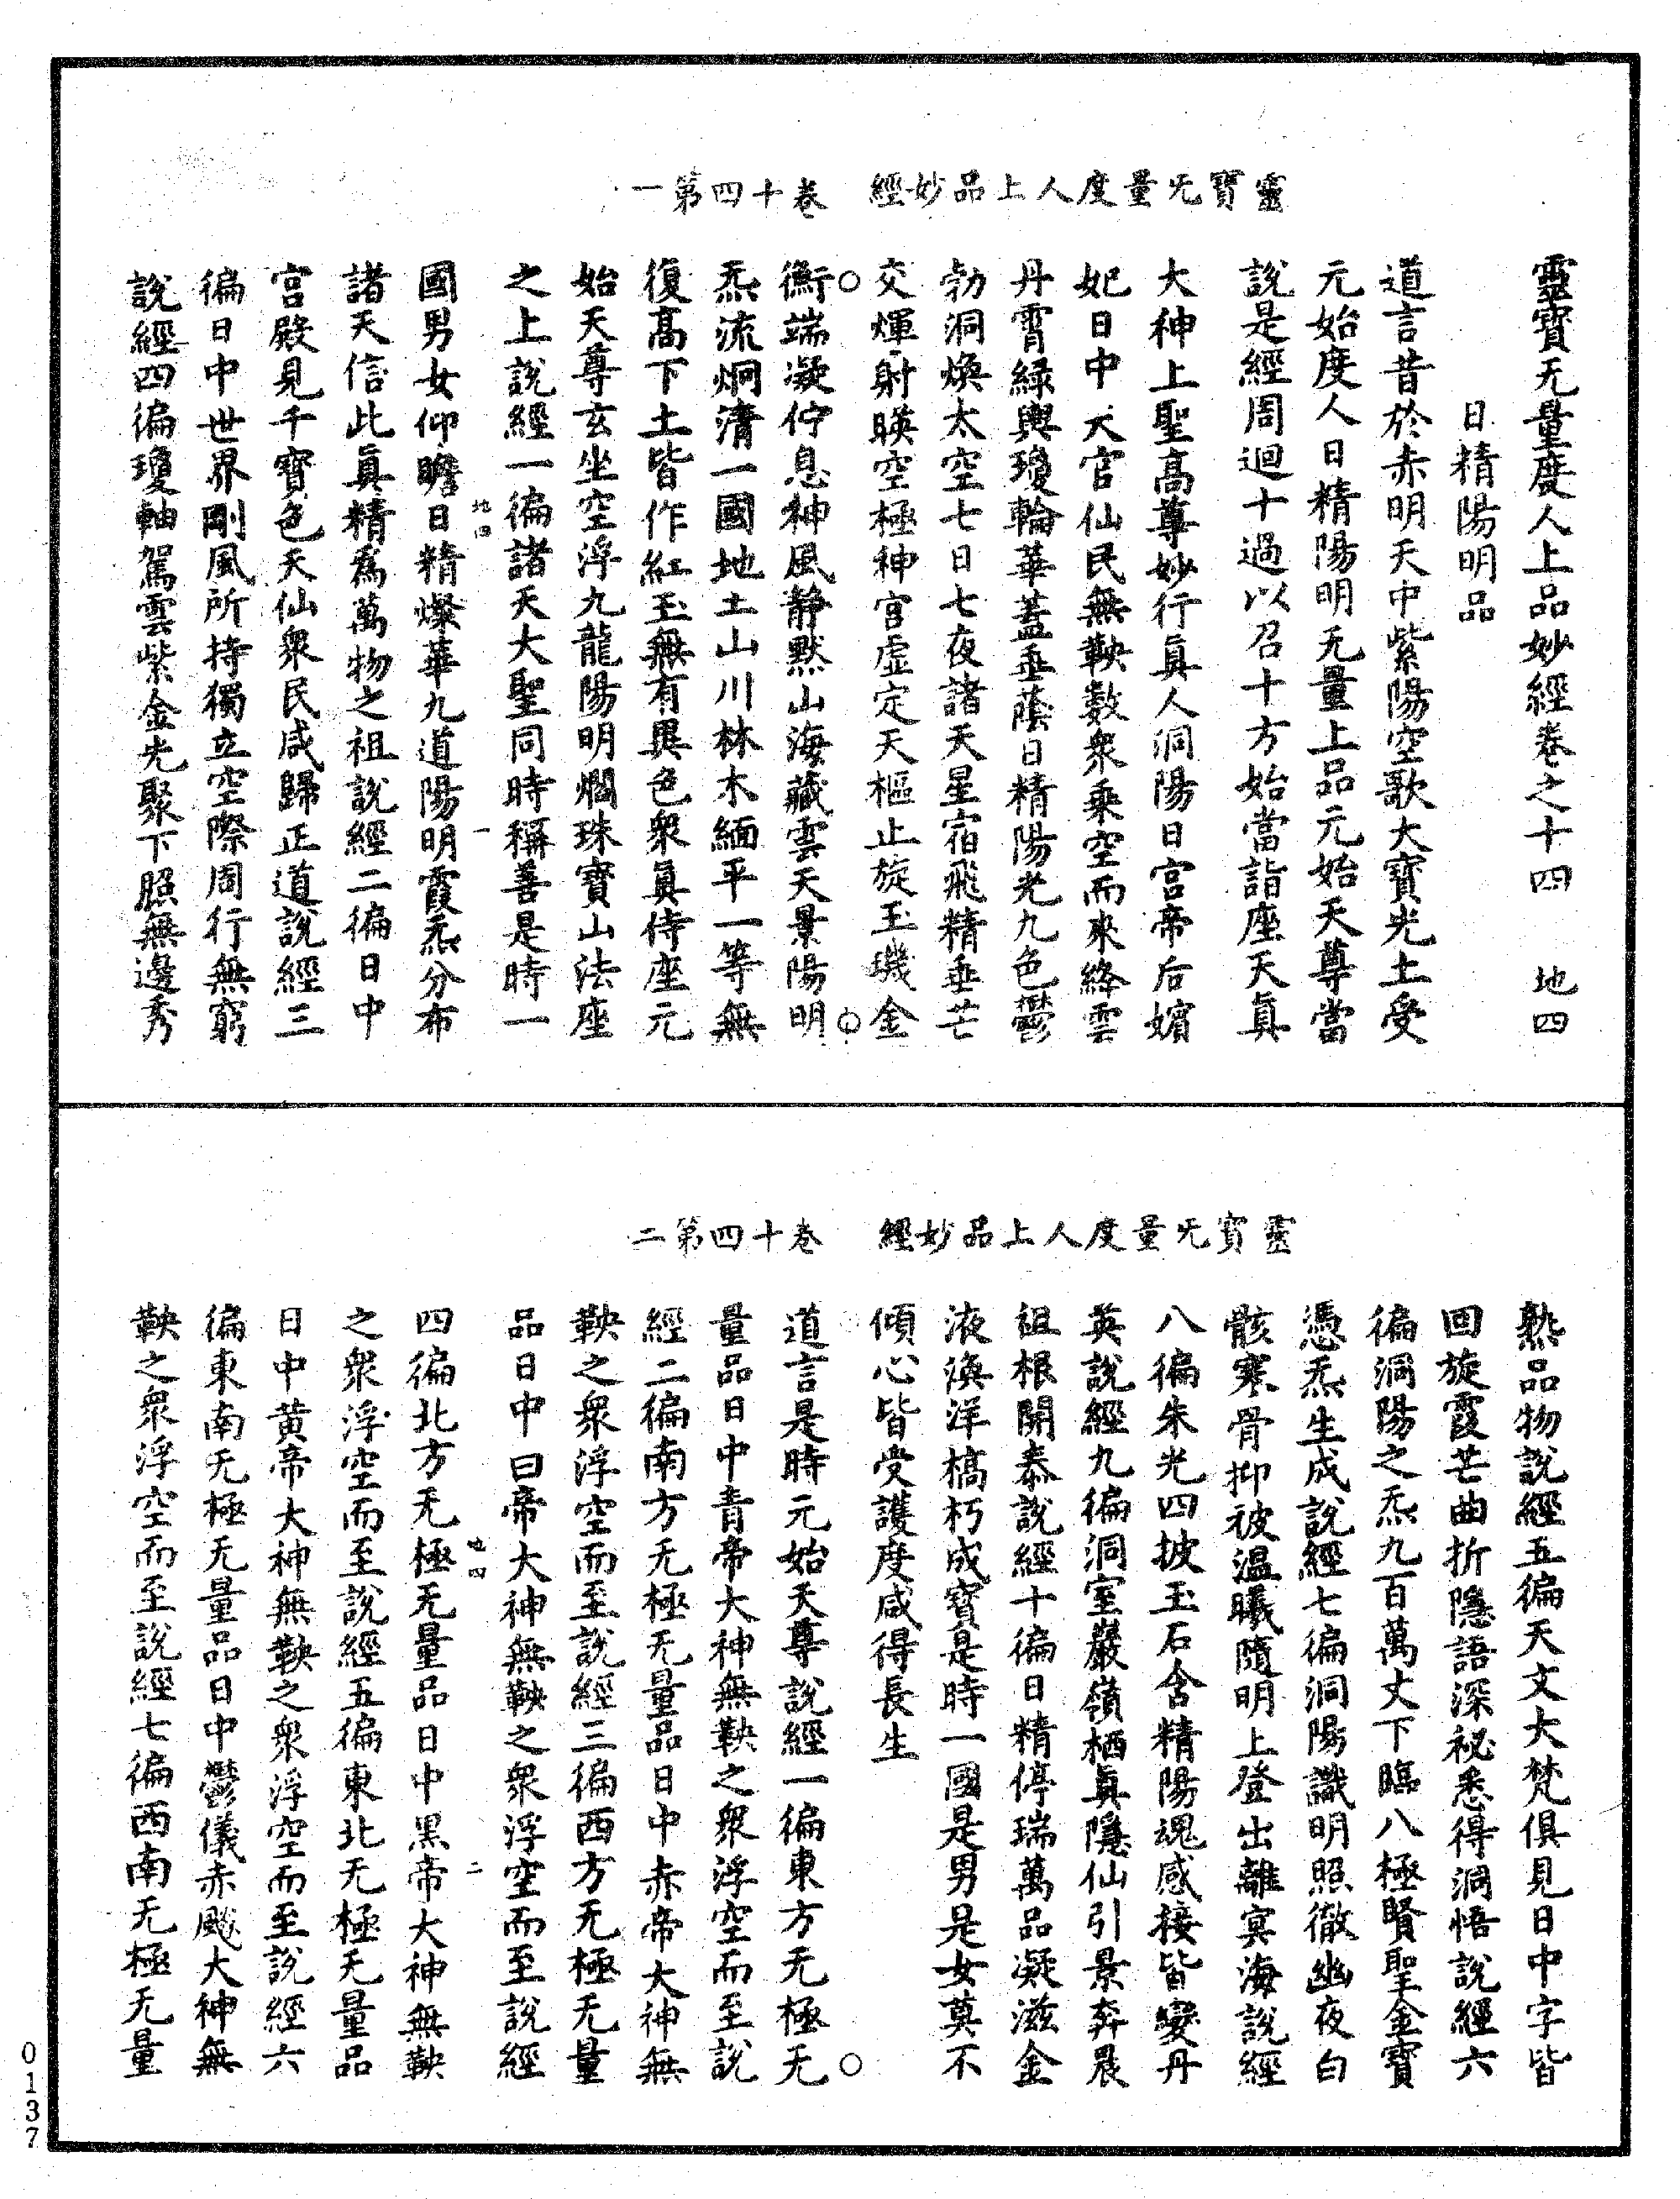 靈寶无量度人上品妙經　卷十四第一
靈寶无量度人上品妙經卷之十四　地四
日精陽明品
道言昔於赤明天中紫陽空歌大寶光土受
元始度人日精陽明无量上品元始天尊當
說是經周迴十過以召十方始當詣座天眞
大神上聖高尊妙行眞人洞陽日宮帝后嬪
妃日中天官仙民無鞅數衆乘空而來絳雲
丹霄緑輿瓊輪華蓋垂蔭日精陽光九色鬱
勃洞煥太空七日七夜諸天星宿飛精垂芒
交煇射暎空極神宮虛定天樞止旋玉璣金
衡端凝佇息神風静默山海藏雲天景陽明
炁流烱清一國地土山川林木緬平一等無
復高下土皆作紅玉無有異色衆眞侍座元
始天尊玄坐空浮九龍陽明爛珠寶山法座
之上說經一徧諸天大聖同時稱善是時一
地四　一
國男女仰瞻日精燦華九道陽明霞炁分布
諸天信此眞精爲萬物之祖說經二徧日中
宮殿見千寶色天仙衆民咸歸正道說經三
徧日中世界剛風所持獨立空際周行無窮
說經四徧瓊軸駕雲紫金光聚下照無邊秀
靈寶无量度人上品妙經　卷十四第二
熟品物說經五徧天文大梵俱見日中字皆
回旋霞芒曲折隱語深祕悉得洞悟說經六
徧洞陽之炁九百萬丈下臨八極賢聖金寶
憑炁生成說經七徧洞陽識明照徹幽夜白
骸寒骨抑被温曦隨明上登出離冥海說經
八徧朱光四披玉石含精陽魂感接皆變丹
英說經九徧洞室巖嶺栖眞隱仙引景奔晨
祖根開泰說經十徧日精停瑞萬品凝滋金
液渙洋槁朽成寶是時一國是男是女莫不
傾心皆受護度咸得長生
道言是時元始天尊說經一徧東方无極无
量品日中青帝大神無鞅之衆浮空而至說
經二徧南方无極无量品日中赤帝大神無
鞅之衆浮空而至說經三徧西方无極无量
品日中曰帝大神無鞅之衆浮空而至說經
地四　二
四徧北方无極无量品日中黒帝大神無鞅
之衆浮空而至說經五徧東北无極无量品
日中黄帝大神無鞅之衆浮空而至說經六
徧東南无極无量品日中鬱儀赤飈大神無
鞅之衆浮空而至說經七徧西南无極无量
0137